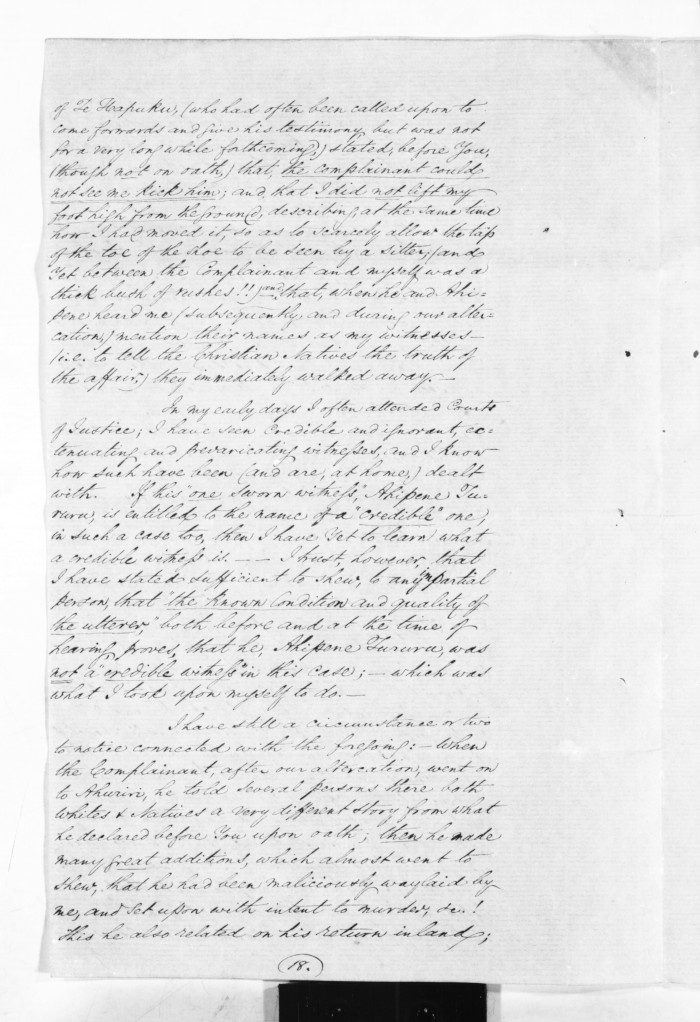 of Te Hapuku, (who had often been called upon to
come forwards and give his testimony but was not
for a very long while forthcoming,) stated, before You,
(though not on oath,) that, the complainant could
not see me kick him; and, that I did not lift my
foot high from the ground, describing at the same time
how I had moved it, so as to scarcely allow the tip
of the toe of the shoe to be seen by a sitter; (and
Yet between the Complainant and myself was a
thick bush of rushes!!) and, that, when he and Ahi-
pene heard me (subsequently and during our alter-
cation,) mention their names as my witnesses—
(i.e. to tell the Christian Natives the truth of
the affair,) they immediately walked away.—
In my early days I often attended Courts
of Justice; I have seen credible and ignorant, ex-
tenuating and prevaricating witnesses, and I know
how such have been (and are, at home,) dealt
with. If this "one sworn witness", Ahipene Tu-
ruru, is entitled to the name of a "credible" one,
in such a case too, then I have Yet to learn what
a credible witness is. — — I trust, however, that
I have stated sufficient to shew, to any impartial
person, that "the known Condition and quality of
the utterer," both before and at the time of
hearing proves, that he, Ahipene Tururu, was
not a "credible witness" in this case; — which was
what I took upon myself to do.—
I have still a circumstance or two
to notice connected with the foregoing:— When
the Complainant, after our altercation, went on
to Ahuriri, he told several persons there both
Whites & Natives a very different story from what
he declared before You upon oath; then he made
many great additions, which almost went to
shew, that he had been maliciously waylaid by
me, and set upon with intent to murder, &c.!
This he also related on his return inland;
18.